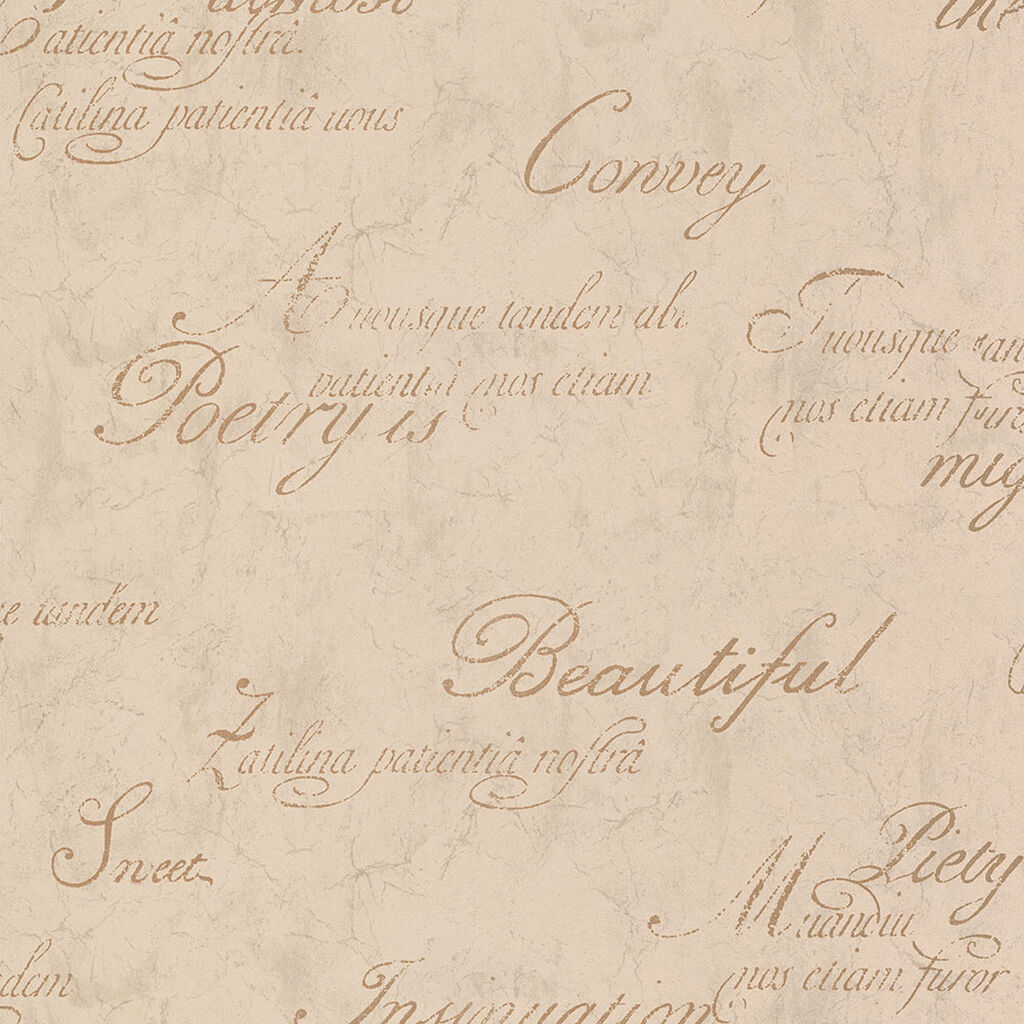 Patientiâ nostrâ.
Catilina patientiâ uous
Convey
Auousque tandem abi
Tuousque tan
patientâ mos etiam
Poetry is
mos etiam furo
mig
e tandem
Beautiful
Zatilina patientiâ nostrâ
Sweet
Piety
Muandiu
mos etiam furor
dem
Insinuation